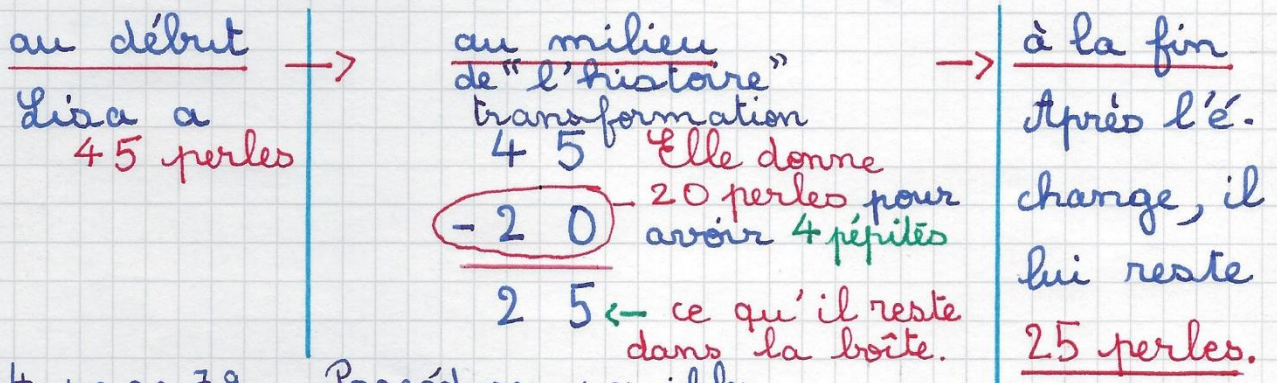 au début
Lisa a
45 perles
→
au milieu
de "l'histoire"
transformation
45 Elle donne
-20 20 perles pour
avoir 4 pépités
25 ← ce qu'il reste
dans la boîte.
→
à la fin
Après l'é-
change, il
lui reste
25 perles.
page 79